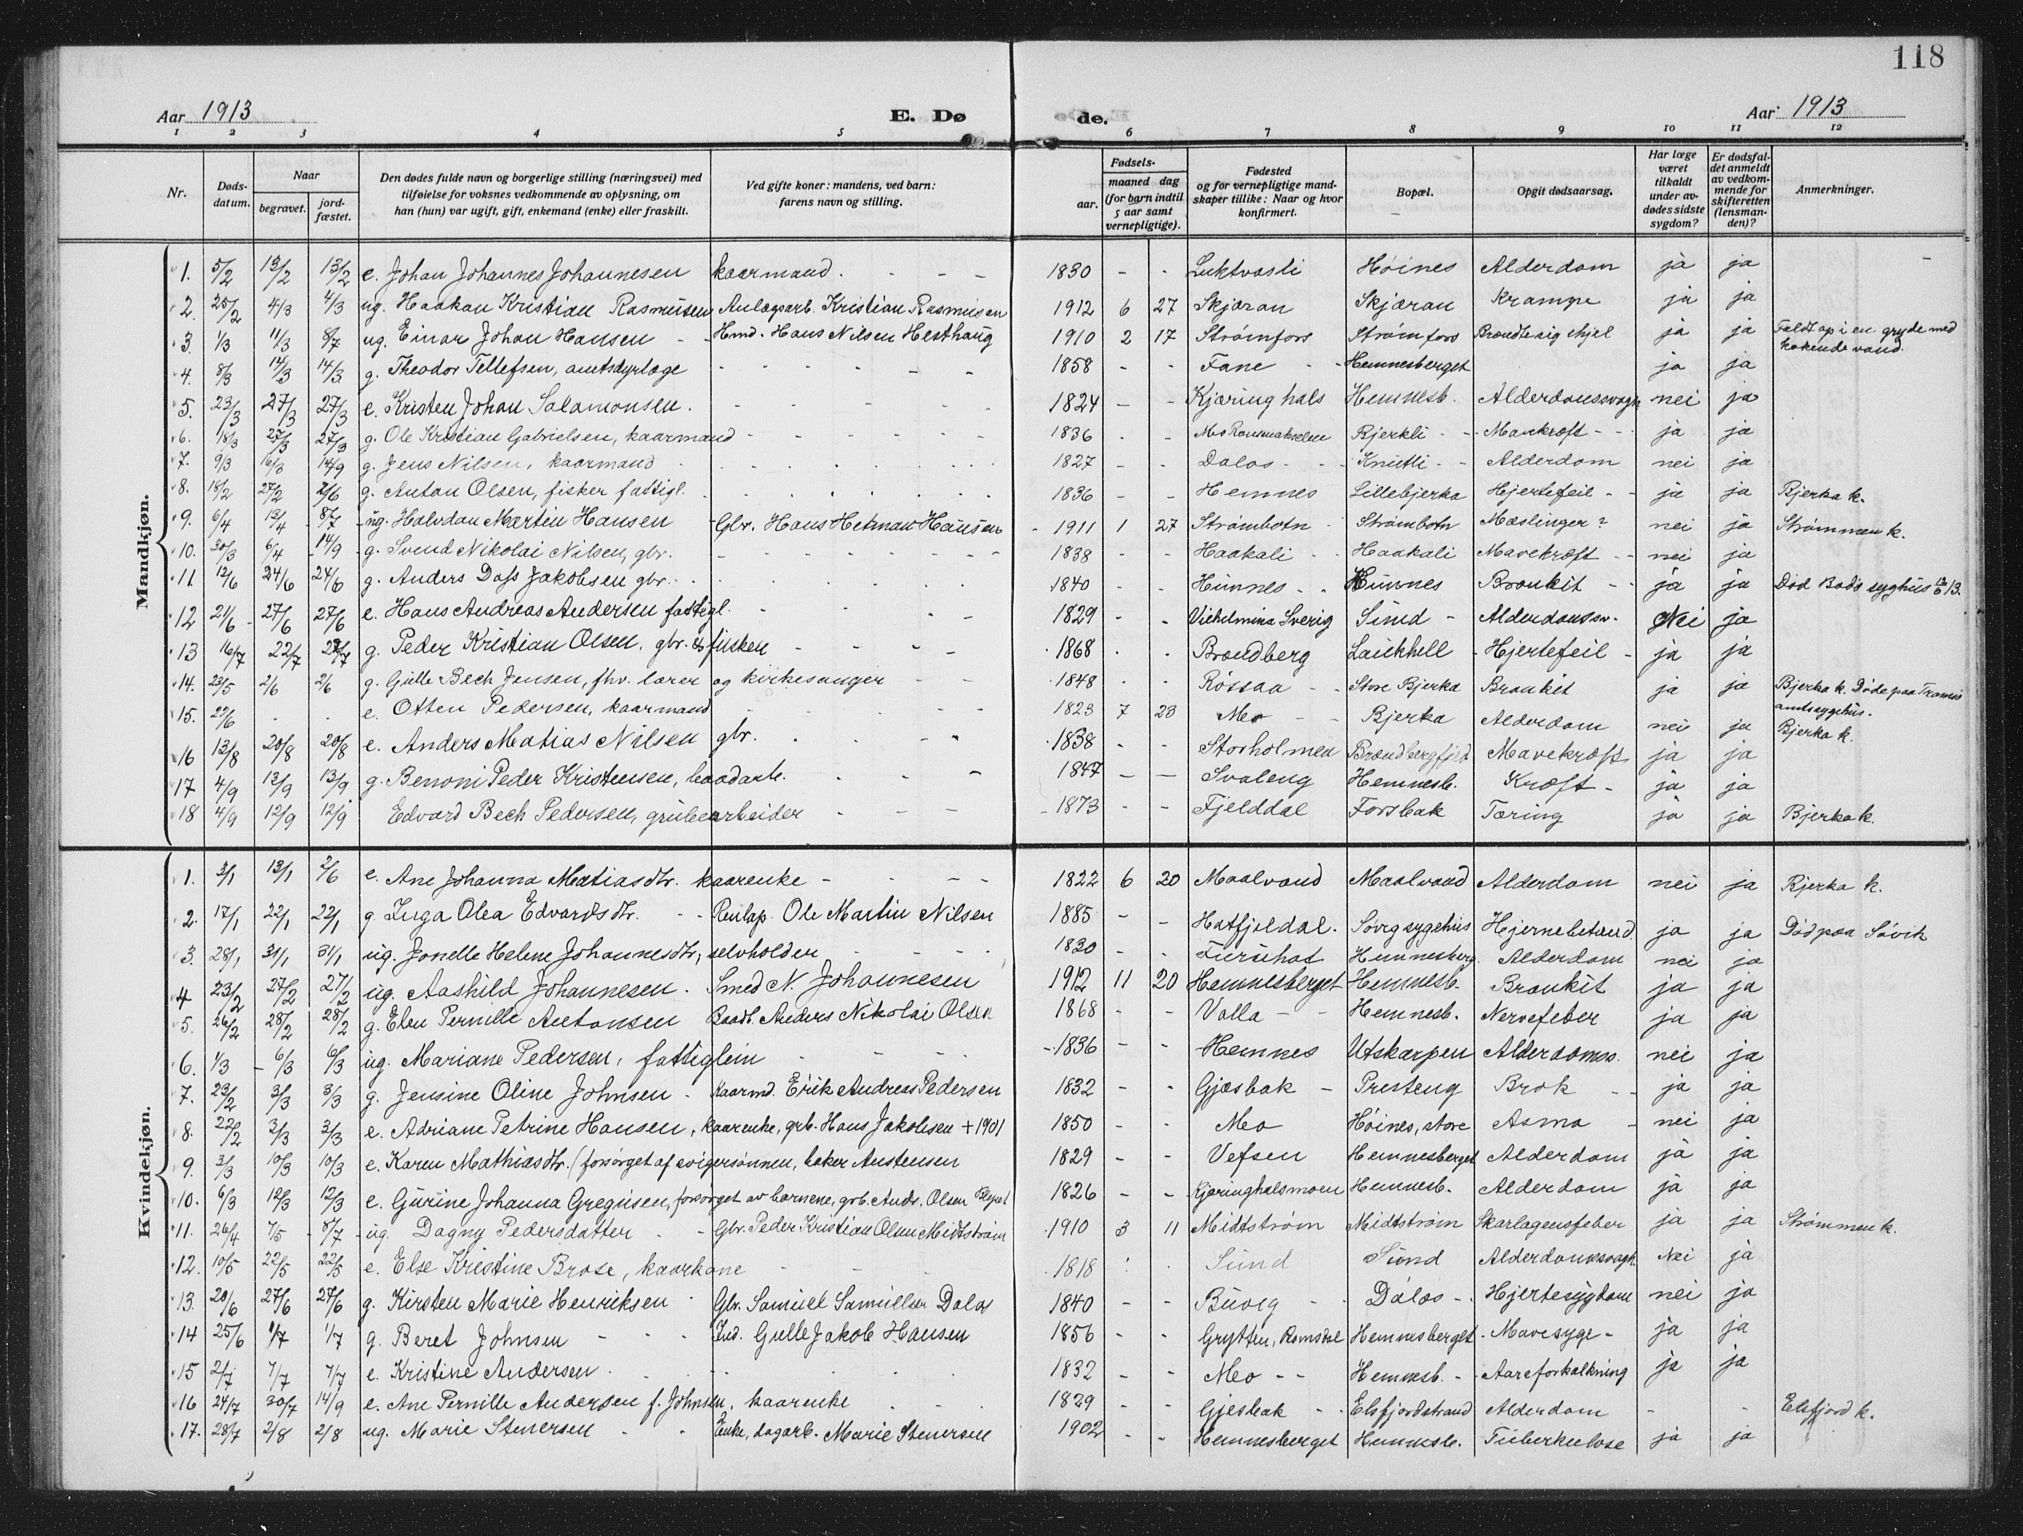 118
Aar 1913 E. Dø de. Aar 1913
1 2 3 4 5 6 7 8 9 10 11 12
Nr. Døds-datum. Naar begravet. jord-fæstet. Den dødes fulde navn og borgerlige stilling (næringsvei) med tilføielse for voksnes vedkommende av oplysning, om han (hun) var ugift, gift, enkemand (enke) eller fraskilt. Ved gifte koner: mandens, ved barn: farens navn og stilling. Fødsels- aar. maaned dag (for barn indtil 5 aar samt vernepligtige). Fødested og for vernepligtige mand-skaper tillike: Naar og hvor konfirmert. Bopæl. Opgit dødsaarsag. Har læge været tilkaldt under av-dødes sidste sygdom? Er dødsfal-det anmeldt av vedkom-mende for skifteretten (lensman-den)? Anmerkninger.
Mandkjøn.
1. 5/2 13/2 13/2 e. Johan Johannes Johannesen kaarmand. - - 1830 - - Luktvasli Høines Alderdom ja ja -
2. 25/2 4/3 4/3 ug. Haakan Kristian Rasmusen Anlægsarb. Kristian Rasmusen 1912 6 27 Skjæran Skjæran Krampe ja ja
3. 1/3 11/3 8/7 ug. Einar Johan Hansen - Hmd. Hans Nilsen Hesthaug 1910 2 17 Strømfors Strømfors Brændte sig ihjel ja ja Faldt op i en gryde med kokende vand.
4. 8/3 14/3 14/3 g. Theodor Tellefsen, amtsdyrlæge - - 1858 - - Fane - Hemnesberget ja ja
5. 23/3 27/3 27/3 e. Kristen Johan Salamonsen. - - 1824 - - Kjæringhals Hemnesb. Alderdomssvagh. nei ja
6. 18/3 27/3 27/3 g. Ole Kristian Gabrielsen, kaarmand - - 1836 - - Mo Bjerkli - Mavekræft - ja ja
7. 9/3 16/3 14/9 g. Jens Nilsen, kaarmand - - 1827 - - Dalos - Knutli - Alderdom nei ja
8. 18/2 27/2 2/6 g. Anton Olsen, fisker fattigl. - - 1836 - - Hemnes Lillebjerka Hjertefeil - ja ja Bjerka k.
9. 6/4 13/4 - 8/7 - ug. Halvdan Martin Hansen - Gbr. Hans Hetman Hansen - 1911 1 27 Strømbotn Strømbotn Mæslinger? nei ja Strømmen k.
10. 30/3 6/4 - 14/9 - g. Svend Nikolai Nilsen, gbr. - - 1838 - - Haakali - Haakali Mavekræft - nei ja
11 12/6 24/6 24/6 g. Anders Dass Jakobsen gbr. - - 1840 - - Hunnes - Hunnes Bronkit - ja ja Død Bodø syghus 12/6 13.
12 21/6 - 27/6 27/6 e. Hans Andreas Andersen fattigl. - - 1829 - - Vilhelmina Sverig Sund - Alderdomssv. Nei ja
13 16/7 22/7 22/7 g. Peder Kristian Olsen, gbr. & fisker - - 1868 - - Brændberg Laukhell - Hjertefeil - ja ja
14. 23/5 2/6 2/6 g. Gulle Bech Jensen, fhv. lærer og kirkesanger - - 1848 - - Røssaa - Store Bjerka Bronkit ja ja Bjerka k. Døde paa Tromsø amtssygehus.
15. 27/6 . . e. Otten Pedersen, kaarmand - - 1823 7 23 Mo - Bjerka Alderdom nei ja Bjerka k.
16 13/8 20/8 20/8 e. Anders Matias Nilsen gbr. - - 1838 - - Storholmen Brændbergfjeld Mavekræft ja ja
17 4/9 13/9 13/9 g. Benoni Peder Kristensen, baadarb. - - 1847 - - Svaleng Hemnesb. Kræft - ja ja
18 4/9 12/9 12/9 Edvard Bech Pedersen, grubearbeider - - 1873 - - Fjelddal Forsbak Tæring ja ja Bjerka k.
Kvindekjøn.
1. 3/1 13/1 2/6 e. Ane Johanna Matiasdtr. kaarenke - - 1822 6 20 Maalvand Maalvand Alderdom nei ja Bjerka k.
2. 17/1 22/1 22/1 g. Inga Olea Edvardsdtr. - Renlap. Ole Martin Nilsen 1885 - - Hatfjeldal. Søvig sygehus Hjernebetænd. ja ja Død paa Søvik
3. 28/1 31/1 31/1 ug. Jonelle Helene Johannesdtr, selvholden - - 1830 - - Furuhat Hemnesberg. Alderdom nei ja
4 23/2 27/2 27/2 ug. Aashild Johannesen. Smed N. Johannesen 1912 11 20 Hemnesberget Hemnesb. Bronkit ja ja
5. 26/2 28/2 28/2 g. Elen Pernille Antonsen Baadb. Anders Nikolai Olsen 1868 - - Valla - - Hemnesb. Nervefeber ja ja
6. 1/3 - 6/3 6/3 ug. Mariane Pedersen, fattiglem - - 1836 - - Hemnes Utskarpen Alderdomss. nei ja
7. 23/2 3/3 3/3 g. Jensine Oline Johnsen - Kaarmd. Erik Andreas Pedersen 1832 - - Gjæsbak - Presteng Brok - ja ja
8. 22/2 3/3 3/3 e. Adriane Petrine Hansen, kaarenke, grb. Hans Jakobsen +1901 1850 - - Mo Høines, store Asma - nei ja
9. 3/3 10/3 10/3 e. Karen Mathiasdtr. (forsørget af svigersønnen, baker Austensen 1829 - - Vefsen Hemnesberget Alderdom ja ja
10. 6/3 12/3 12/3 e. Gurine Johanna Gregusen, forsørget av barnene, grb. Ands. Olsen 1826 - - Kjæringhalsmoen Hemnesb. Alderdom ja ja
11. 26/4 7/5 - 8/7 - ug. Dagny Pedersdatter - Gbr. Peder Kristian Olsen Midtstrøm 1910 3 11 Midtstrøm Midtstrøm Skarlagensfeber ja ja Strømmen k.
12. 10/5 22/5 22/5 e. Else Kristine Brose, kaarkone - - 1818 - - Sund Sund Alderdomssvagh. Nei ja
13. 20/6 27/6 27/6 g. Kirsten Marie Henriksen - Gbr. Samuel Samuelsen Dalos 1840 - - Buvig - Dalos - Hjertesygdom nei ja
14 25/6 1/7 1/7 g. Beret Johnsen - - Ind. Gulle Jakob Hansen 1856 - - Grytten, Romsdal Hemnesberget - Mavesyge - ja ja
15 2/7 7/7 7/7 e. Kristine Andersen - - 1832 - - Mo - - Hemnesb. - Aareforkalkning ja ja
16 24/7 30/7 14/9 e. Ane Pernille Andersen f. Johnsen, kaarenke - - 1829 - - Gjesbak - Elsfjordstrand Alderdom - - Elsfjord k.
17. 28/7 2/8 2/8 ug. Marie Stenersen - - Enke, dagarb. Marie Stenersen 1902 - - Hemnesberget Hemnesb. Tuberkulose ja ja